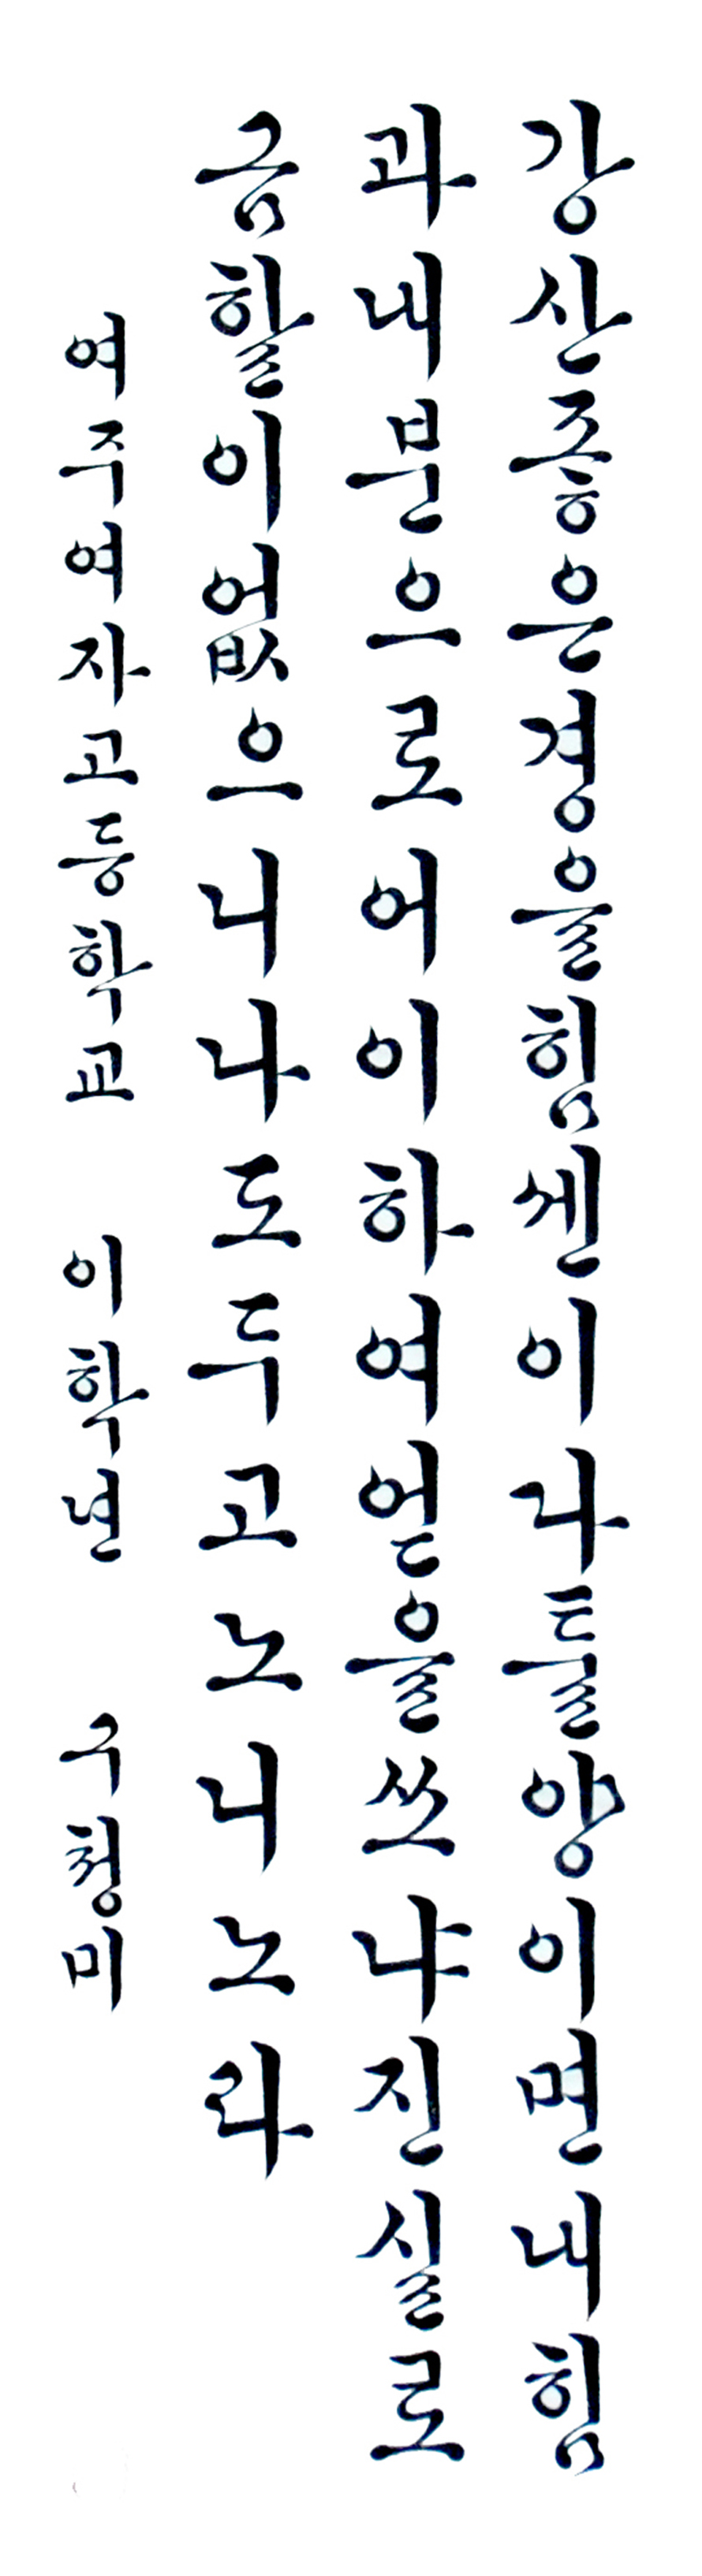 강산좋은경을힘센이나틀양이면내힘
과내분으로어이하여얻을쓰냐진실로
금할이없으니나도두고노니노라
여주여자고등학교 이학년 구청미